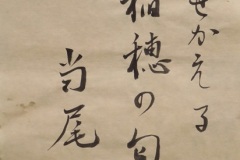 せかえる
稲穂の匂
当尾